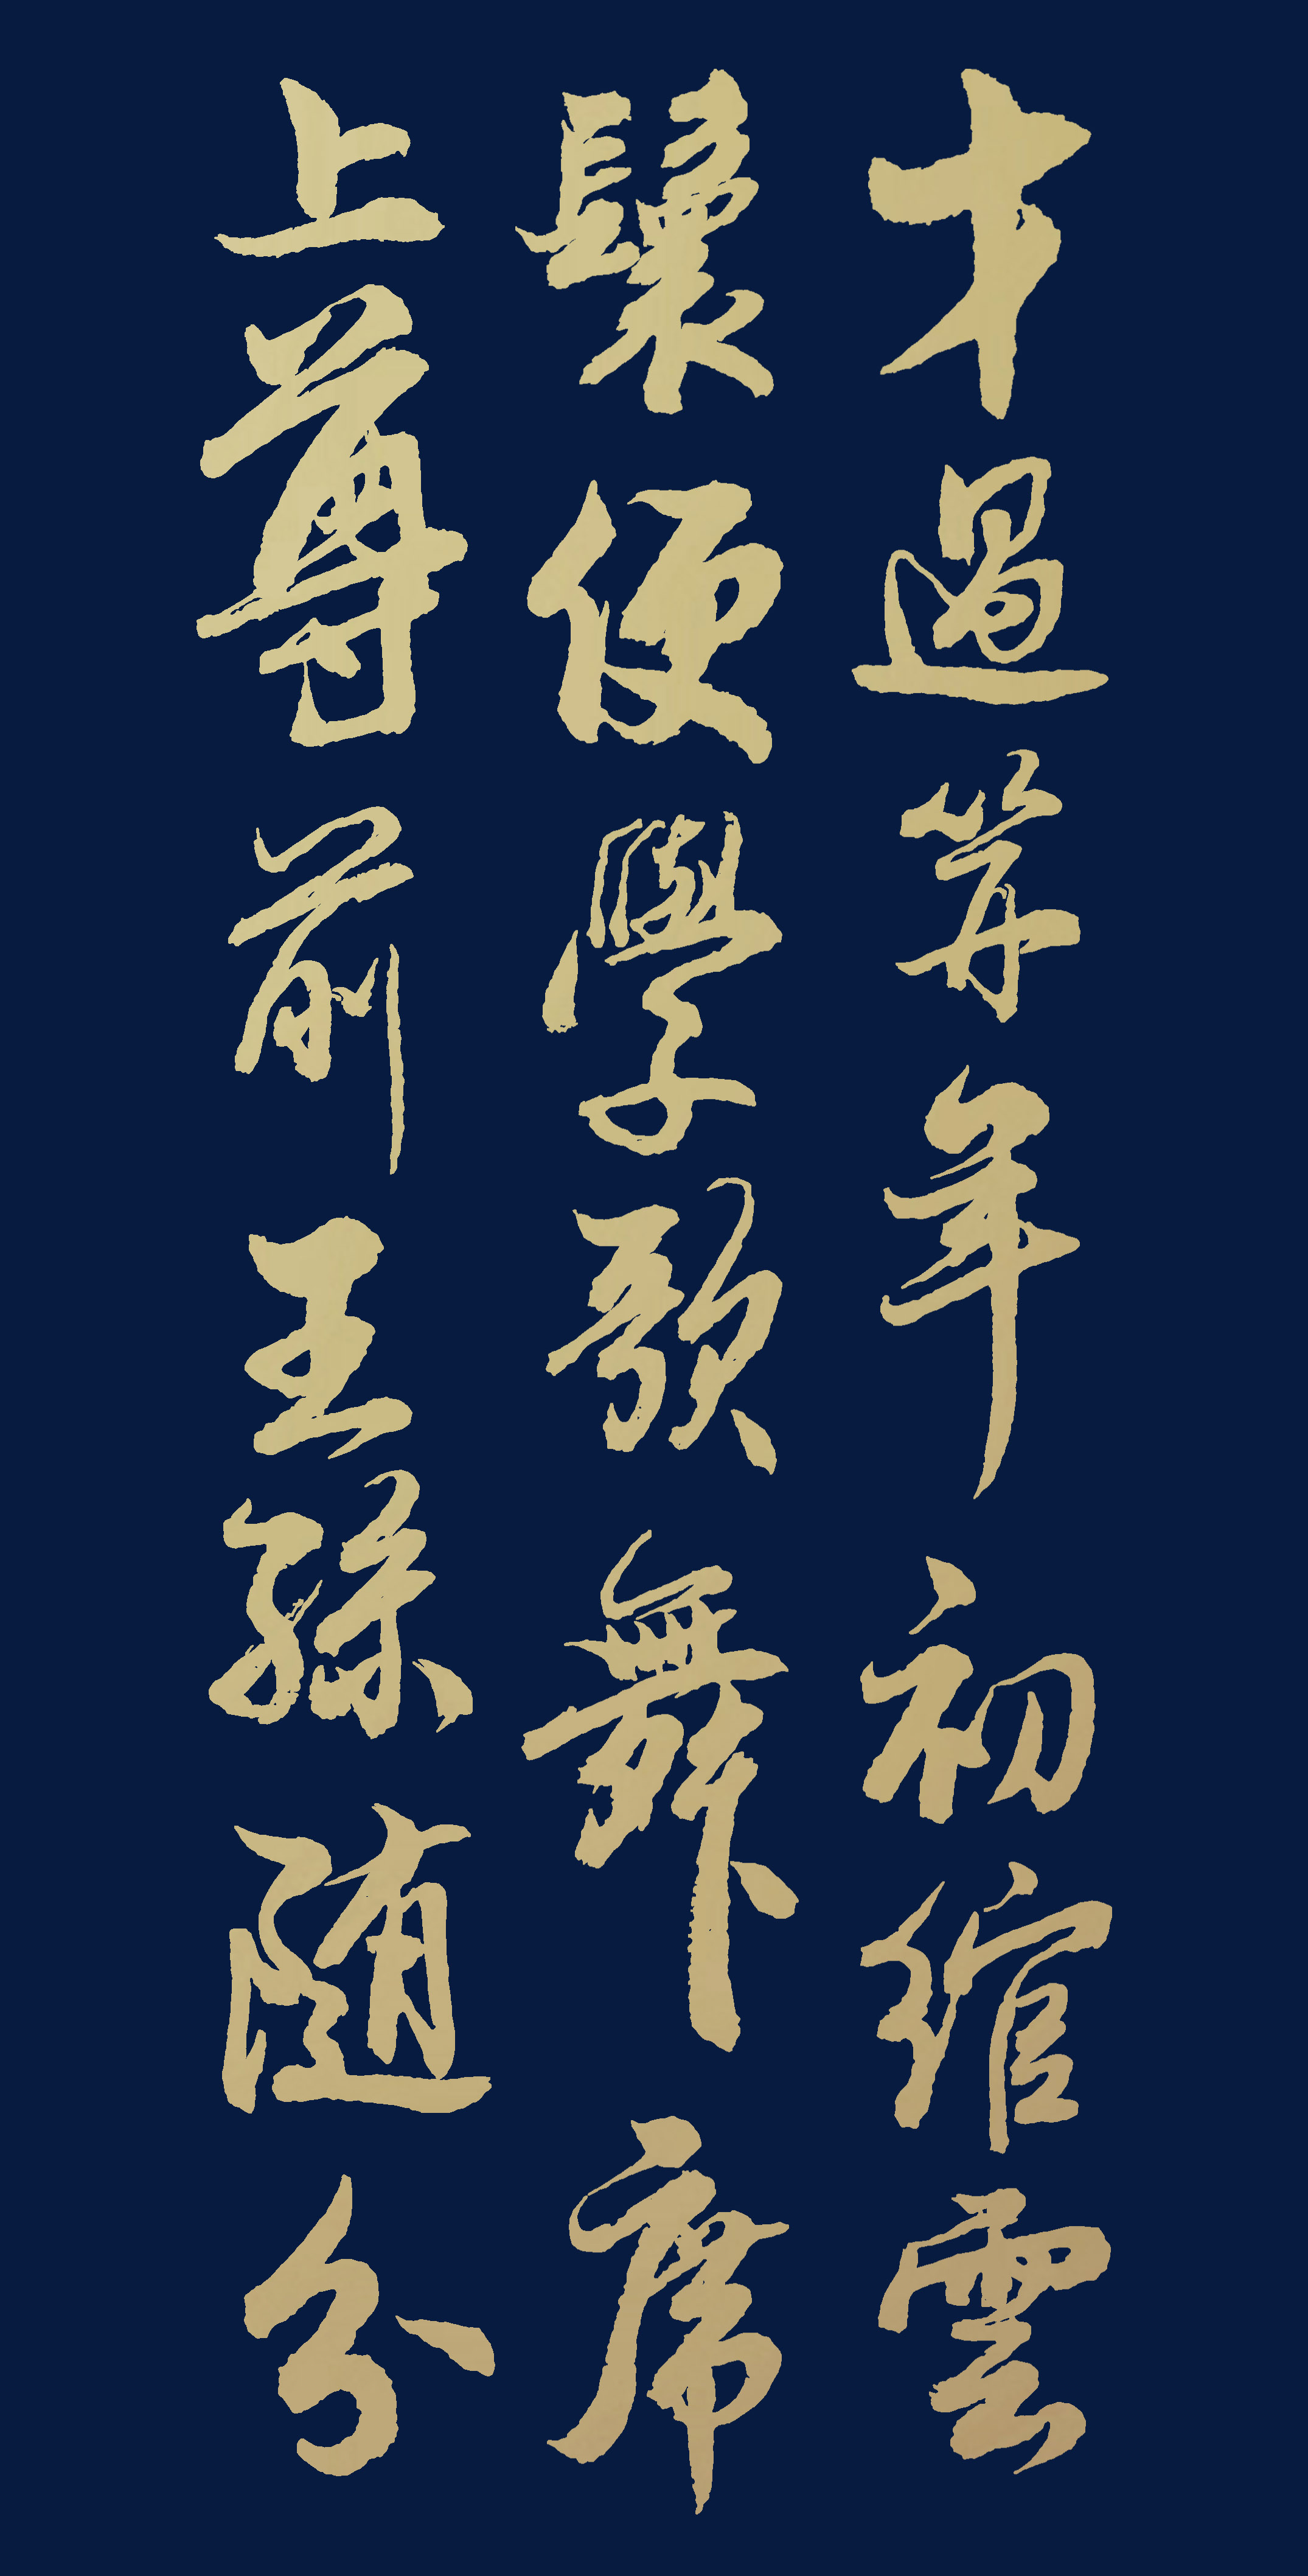 才過笄年初綰雲
鬟便學歌舞席
上尊前王孫随分